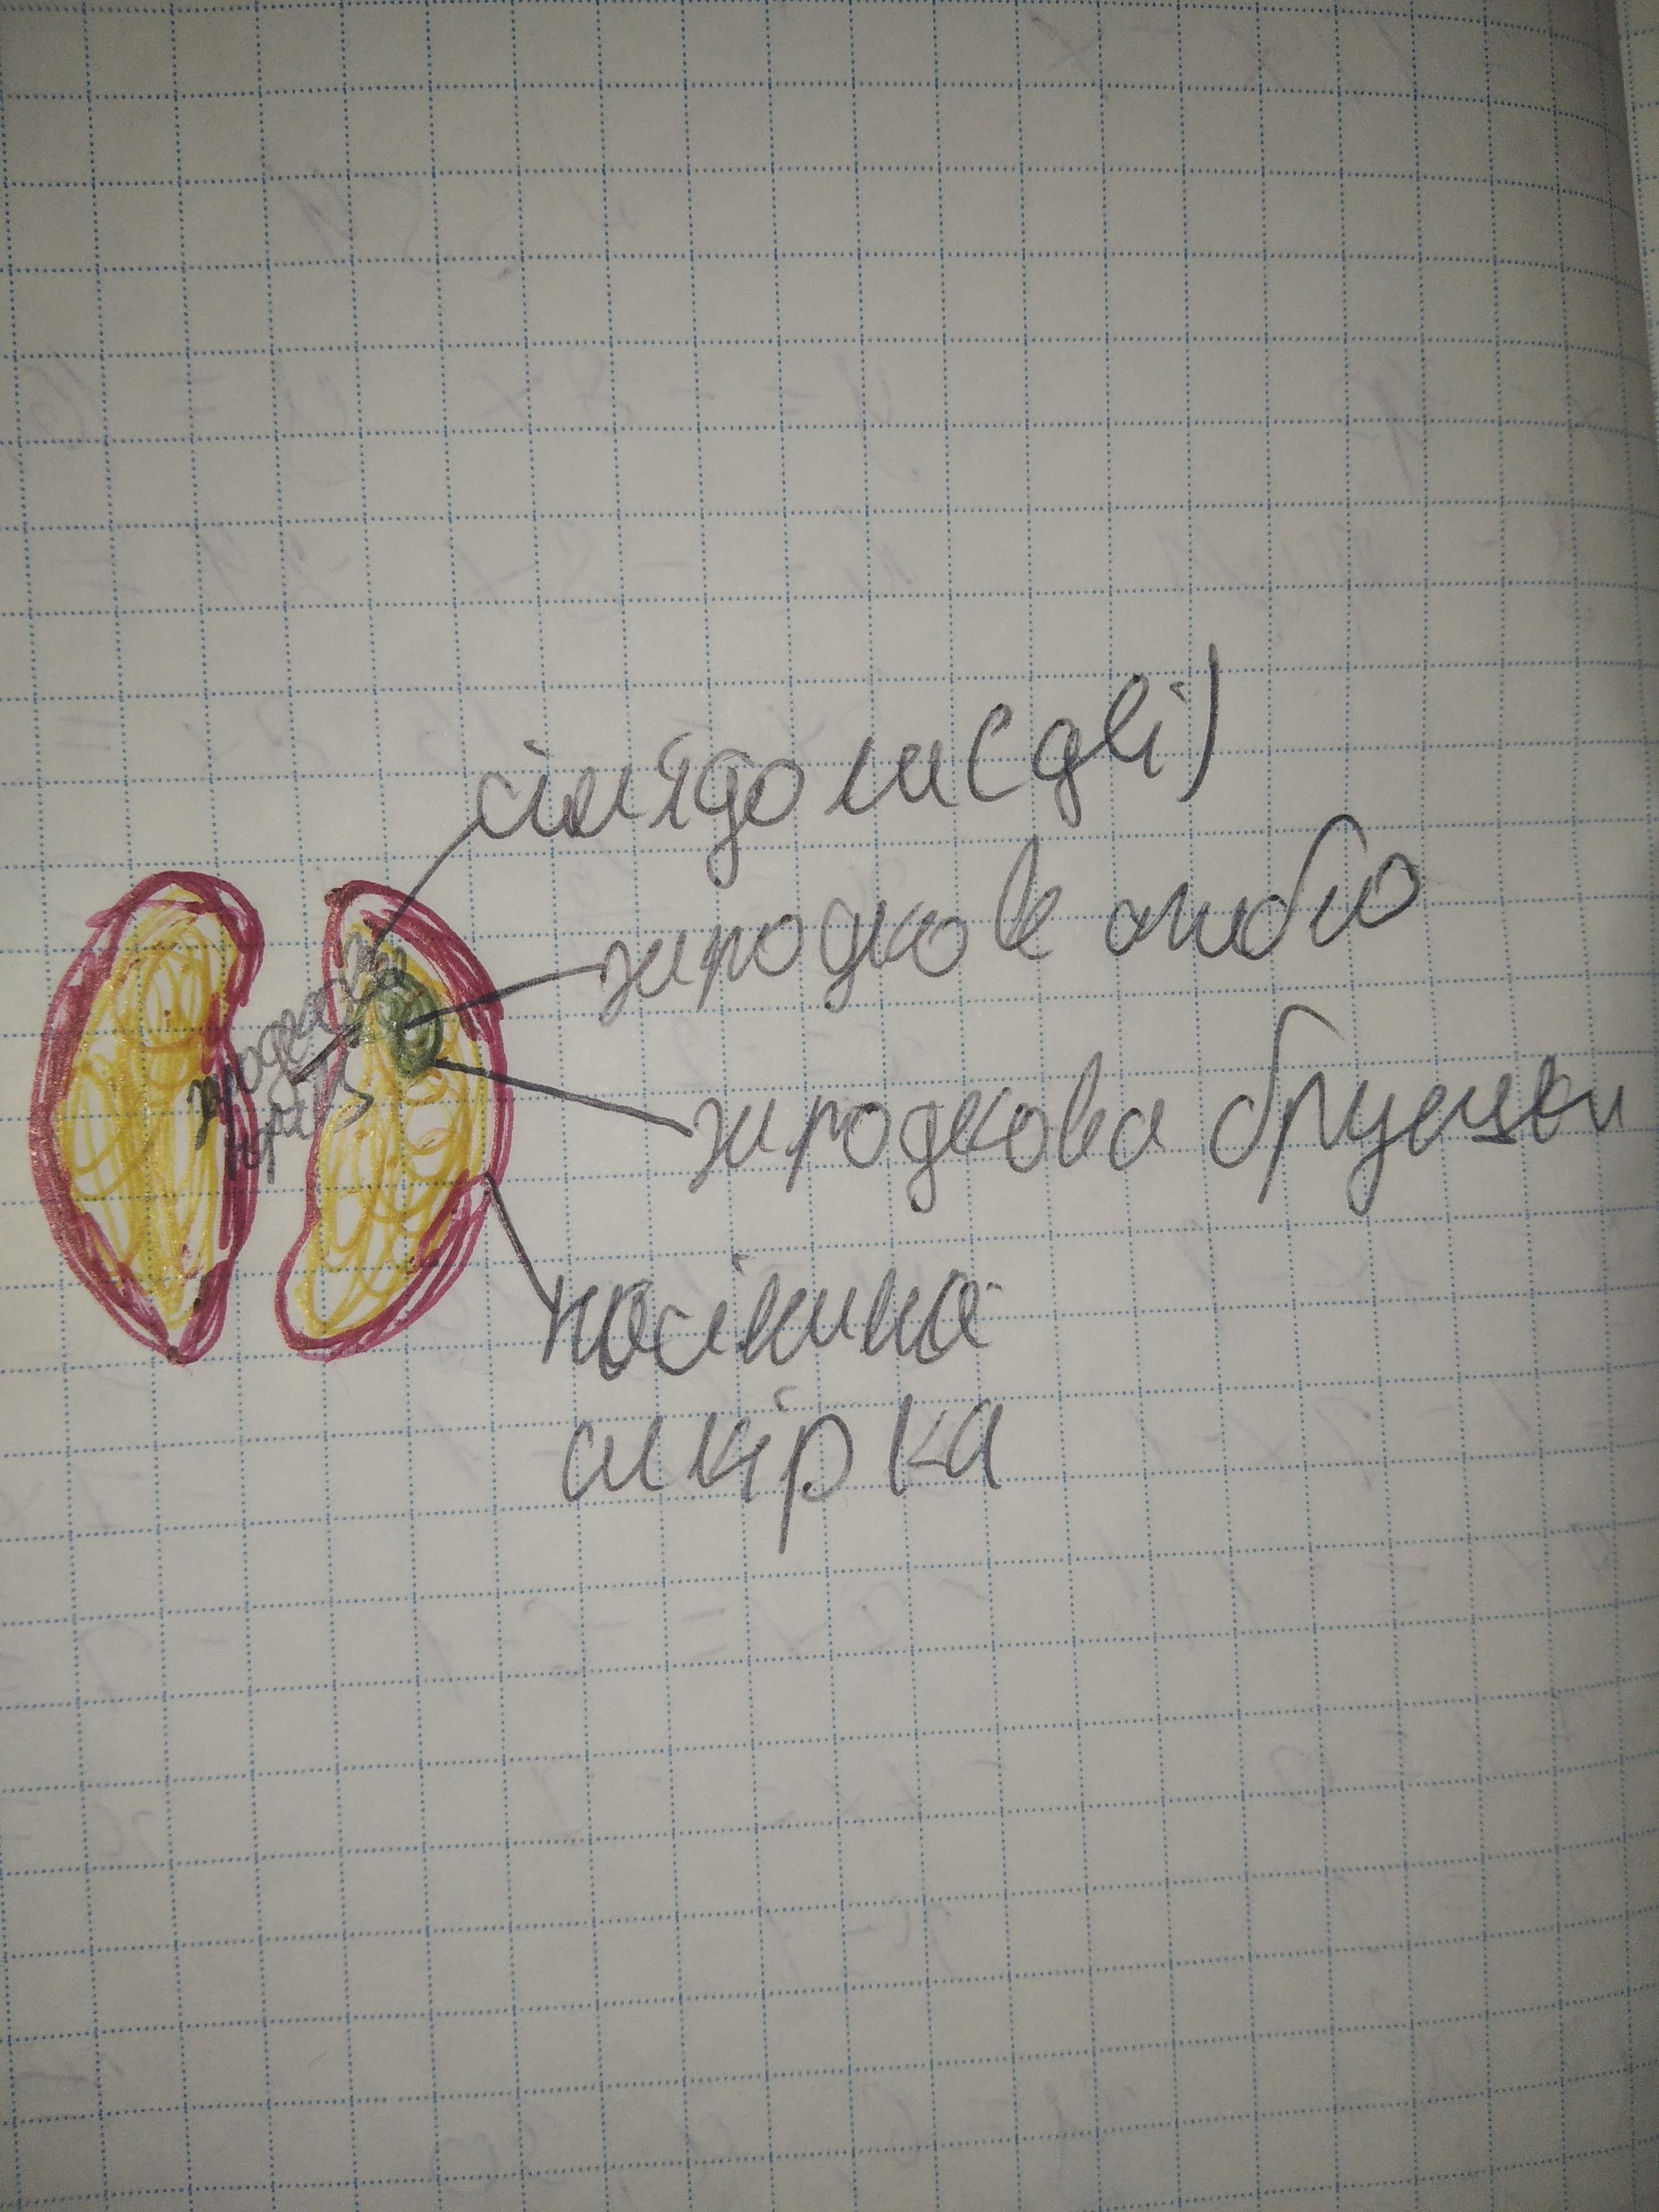 сім'ядоли(дві)
зародкове стебло
зародкова брунька
насінина
шкірка
зародковий
корінь